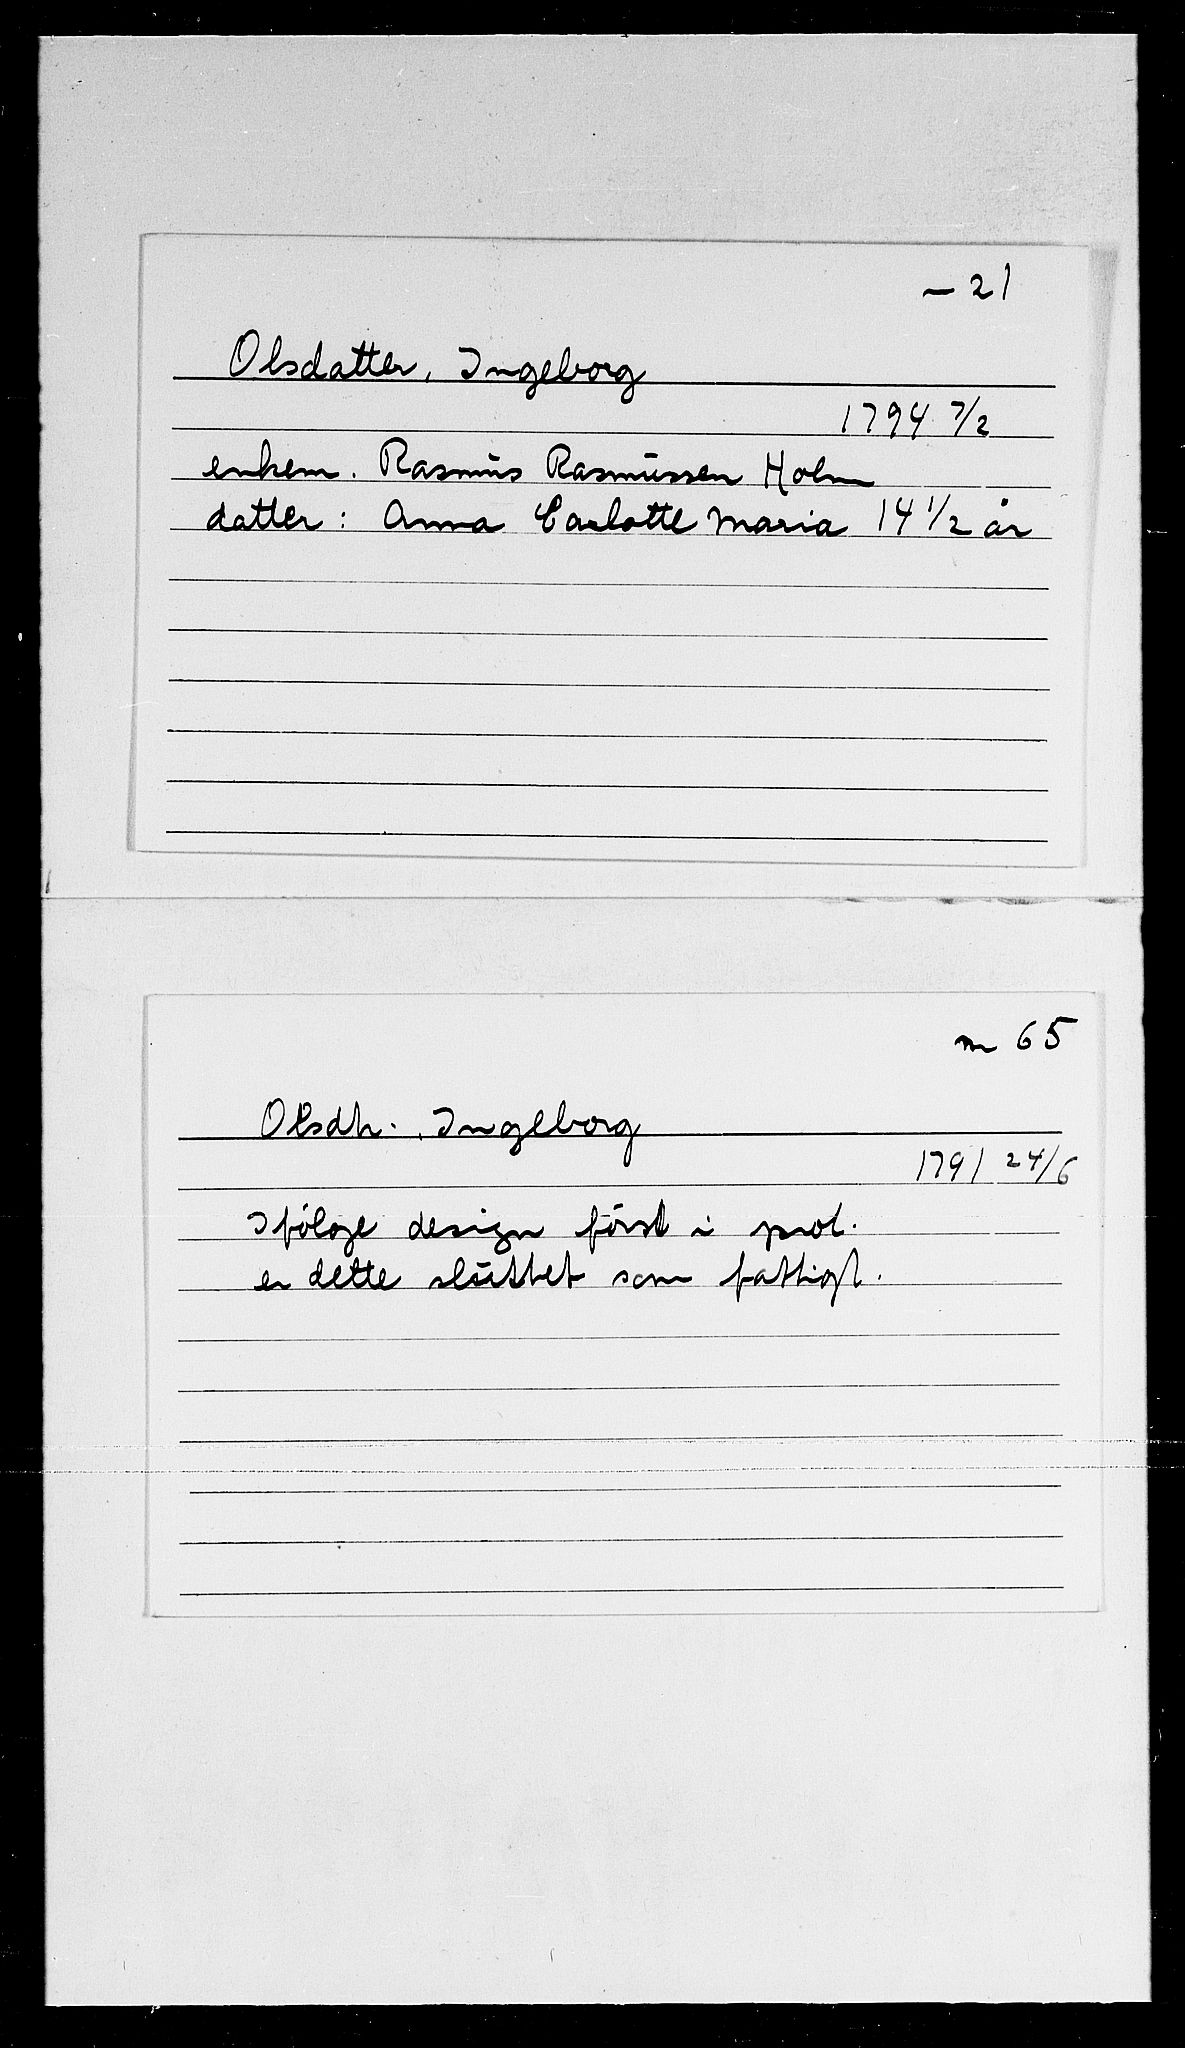 – 21
Olsdatter, Ingeborg
1794 7/2
enkem. Rasmus Rasmussen Holm
datter: Anna Carlotte Maria 14 1/2 år
m 65
Olsdtr., Ingeborg
1791 24/6
Ifølge design først i prot.
er dette sluttet som fattigt.